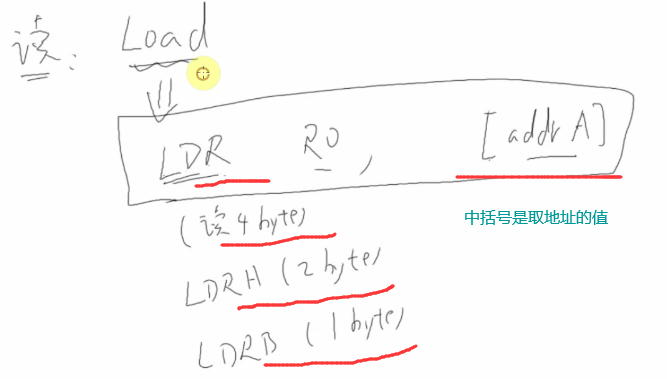 读: Load
LDR R0, [addr A]
(读 4 byte)
中括号是取地址的值
LDRH (2 byte)
LDRB (1 byte)